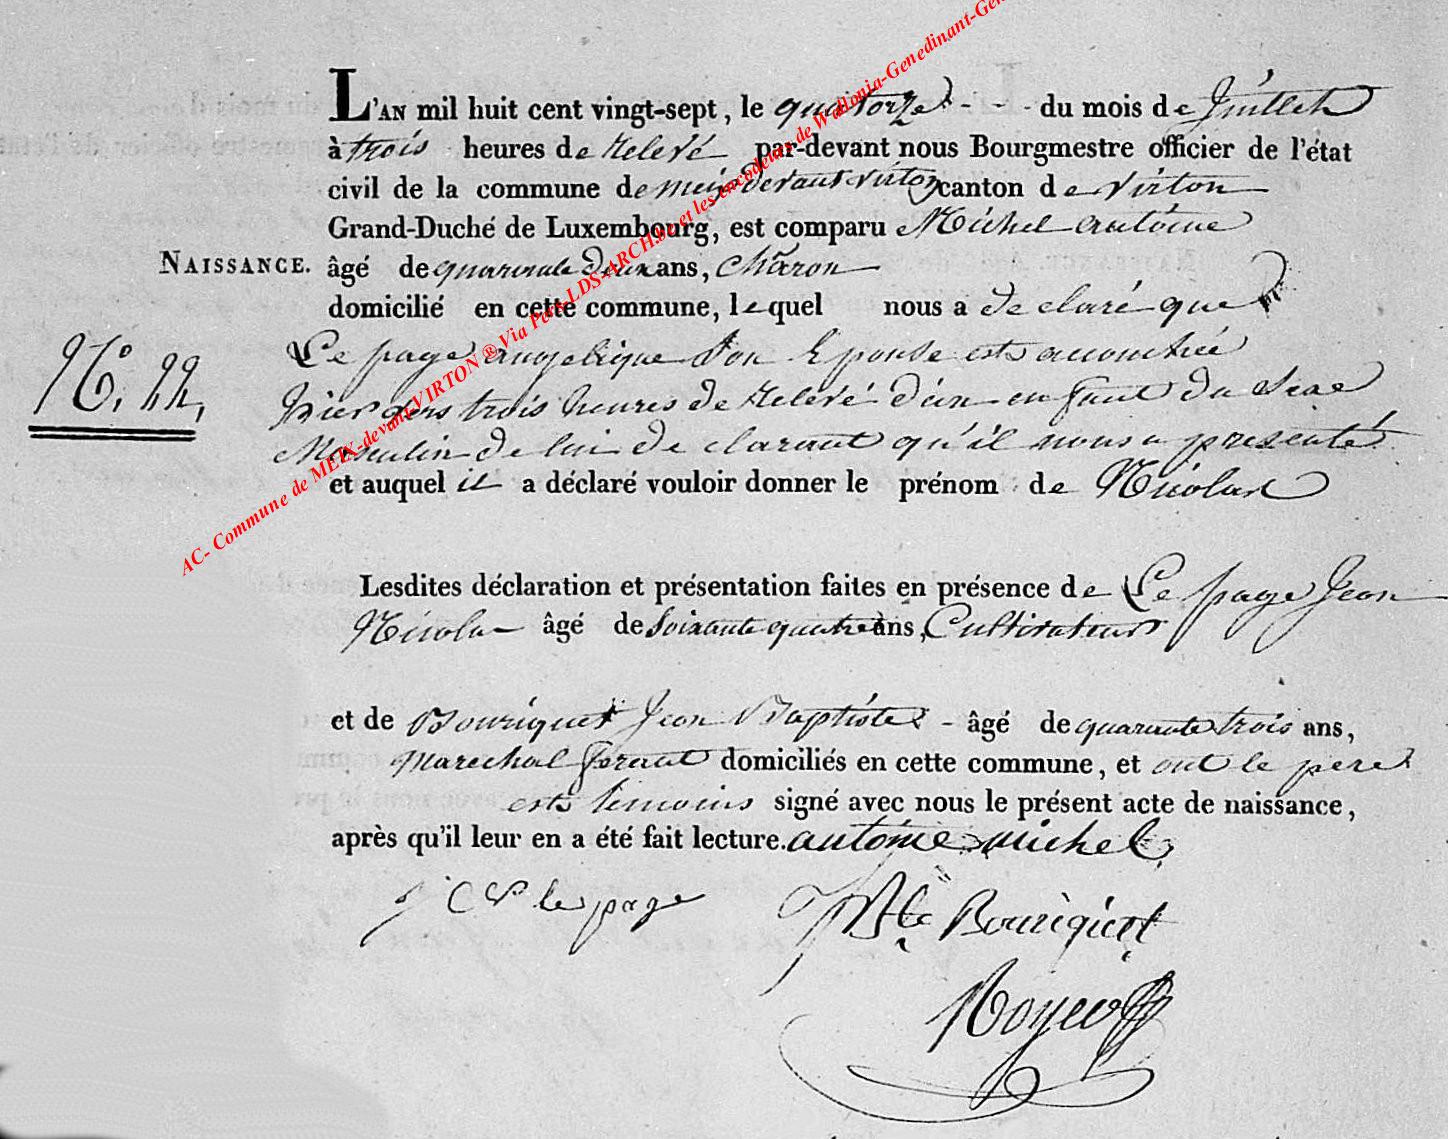 L'AN mil huit cent vingt-sept, le quatorze - - - du mois de Juillet
à trois heures de relevé par-devant nous Bourgmestre officier de l'état
civil de la commune de meix devant virton canton de virton
Grand-Duché de Luxembourg, est comparu Michel antoine
NAISSANCE. âgé de quarente deux ans, charon
domicilié en cette commune, lequel nous a de claré que
No. 22. Le page angelique son Epouse est accouchée
hier vers trois heures de relevé d'un enfant du sexe
Masculin de lui de clarant qu'il nous a presenté
et auquel il a déclaré vouloir donner le prénom de Nicolas
Lesdites déclaration et présentation faites en présence de Le page Jean
Nicolas âgé de soixante quatre ans, Cultivateur
et de Bouriquet Jean Baptiste - âgé de quarante trois ans,
Marechal ferant domiciliés en cette commune, et ont le pere
ets temoins signé avec nous le présent acte de naissance,
après qu'il leur en a été fait lecture. antoine michel
le page
Bte Bouriquet
AC- Commune de MEIX-devant-VIRTON ® Via Pere-LDS-ARCH.be et les encodeurs de Wallonia-Genedinant-Gen